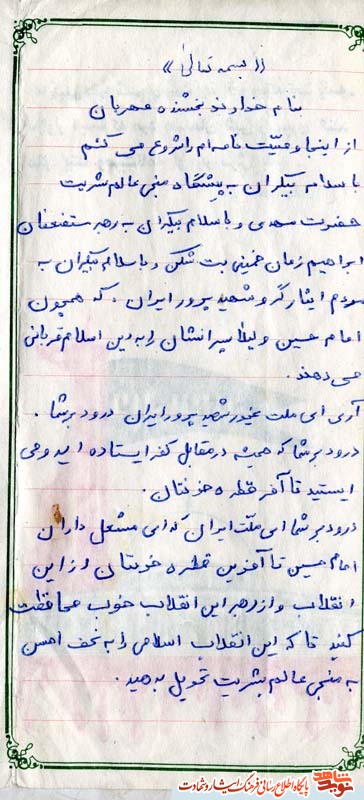 (( بسمه تعالی ))
بنام خداوند بخشنده مهربان
از اینجا وصیت نامه ام را شروع می کنم
با سلام بیکران به پیشگاه منجی عالم بشریت
حضرت مهدی و با سلام بیکران به رهبر مستضعفان
ابراهیم زمان خمینی بت شکن و با سلام بیکران به
مردم ایثارگر و شهید پرور ایران ، که همچون
امام حسین و لیلا پسرانشان را به دین اسلام قربانی
می دهند .
آری ای ملت غیور شهید پرور ایران درود بر شما .
درود بر شما که همیشه در مقابل کفر ایستاده اید و می
ایستید تا آخر قطره خونتان .
درود بر شما ای ملت ایران که ای مشعل داران
امام حسین تا آخرین قطره خونتان از این
انقلاب و از رهبر این انقلاب خوب محافظت
کنید تا که این انقلاب اسلامی را به نحو احسن
به منجی عالم بشریت تحویل بدهید .
پایگاه اطلاع رسانی فرهنگ ایثار و شهادت
نوید شاهد